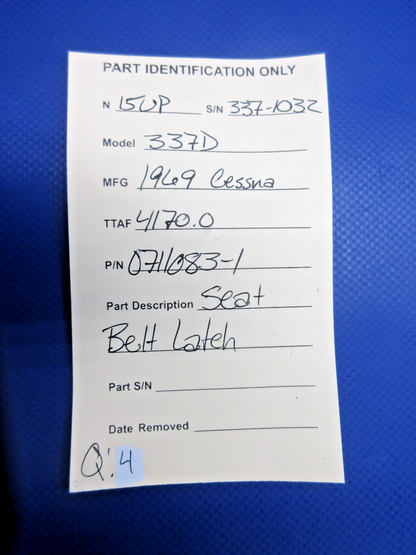 PART IDENTIFICATION ONLY
N 15UP S/N 337-1032
Model 337D
MFG 1969 Cessna
TTAF 4170.0
P/N 0711083-1
Part Description Seat
Belt Latch
Part S/N
Date Removed
Q: 4